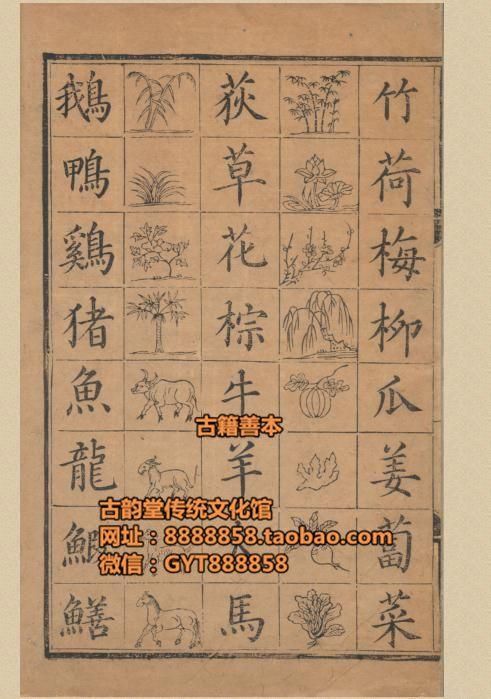 竹荷梅柳瓜姜蔔菜
荻草花棕牛羊犬馬
鵝鴨鷄猪魚龍鰕鱔
古籍善本
古韵堂传统文化馆
网址:8888858.taobao.com
微信:GYT888858